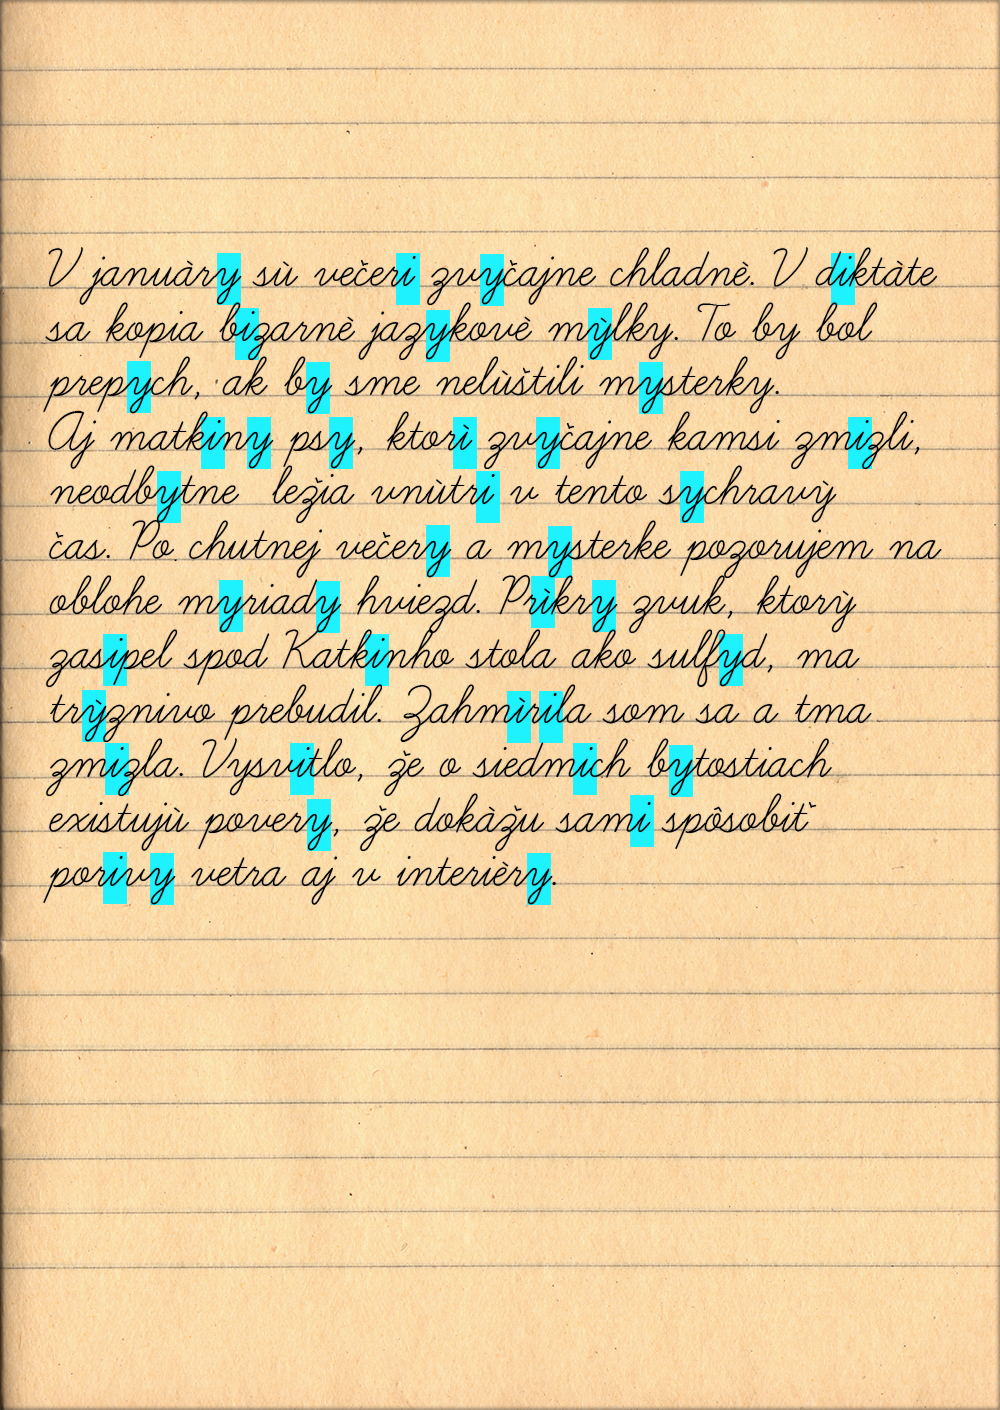 V januàry sù večeri zvyčajne chladnè. V diktàte
sa kopia bizarnè jazykovè mỳlky. To by bol
prepych, ak by sme nelùštili mysterky.
Aj matkiny psy, ktorì zvyčajne kamsi zmizli,
neodbytne ležia vnùtri v tento sychravỳ
čas. Po chutnej večery a mysterke pozorujem na
oblohe myriady hviezd. Prìkry zvuk, ktorỳ
zasipel spod Katkinho stola ako sulfyd, ma
trỳznivo prebudil. Zahmìrila som sa a tma
zmizla. Vysvitlo, že o siedmich bytostiach
existujù povery, že dokàžu sami spôsobiť
porivy vetra aj v interièry.